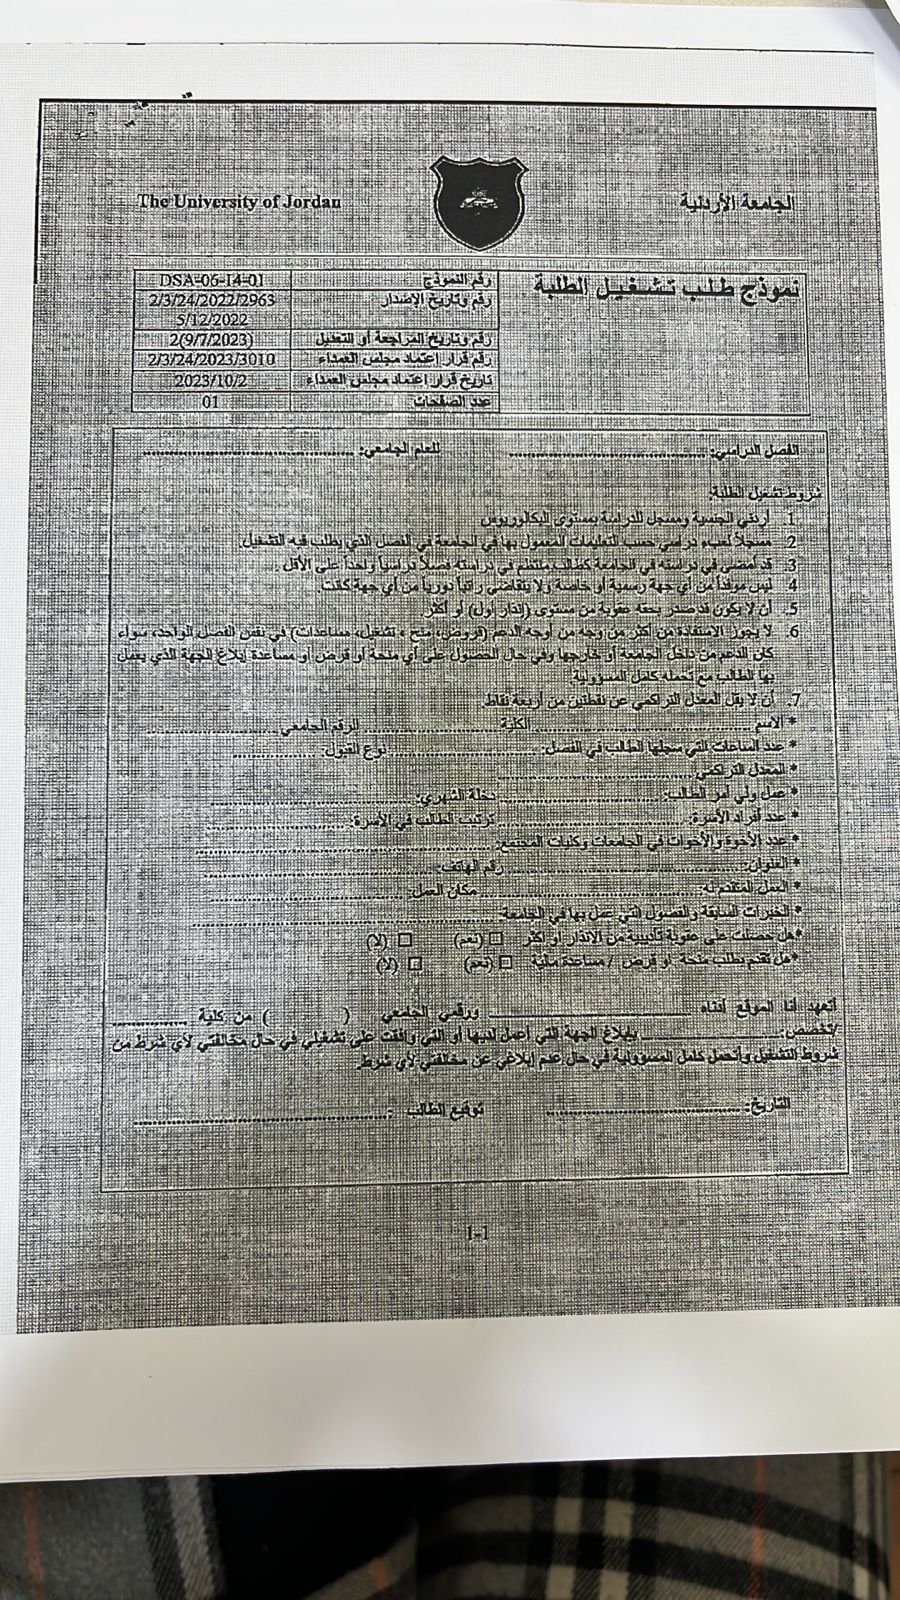 The University of Jordan
الجامعة الأردنية
نموذج طلب تشغيل الطلبة
رقم النموذج DSA-06-14-01
رقم وتاريخ الإصدار 2/3/24/2022/2963
5/12/2022
رقم وتاريخ المراجعة أو التعديل 2(9/7/2023)
رقم قرار إعتماد مجلس العمداء 2/3/24/2023/3010
تاريخ قرار إعتماد مجلس العمداء 2023/10/2
عدد الصفحات 01
الفصل الدراسي: للعام الجامعي:
شروط تشغيل الطلبة:
1. أردني الجنسية ومسجل للدراسة بمستوى البكالوريوس
2. مسجلاً لعبء دراسي حسب التعليمات المعمول بها في الجامعة في الفصل الذي يطلب فيه التشغيل.
3. قد أمضى في دراسته في الجامعة كطالب منتظم في دراسته فصلاً دراسياً واحداً على الأقل.
4. ليس موفداً من أي جهة رسمية أو خاصة ولا يتقاضى راتباً دورياً من أي جهة كانت.
5. أن لا يكون قد صدر بحقه عقوبة من مستوى (إنذار أول) أو أكثر.
6. لا يجوز الاستفادة من أكثر من وجه من أوجه الدعم (قروض، منح، تشغيل، مساعدات) في نفس الفصل الواحد، سواء
كان الدعم من داخل الجامعة أو خارجها وفي حال الحصول على أي منحة أو قرض أو مساعدة إبلاغ الجهة الذي يعمل
بها الطالب مع تحمله كامل المسؤولية.
7. أن لا يقل المعدل التراكمي عن نقطتين من أربعة نقاط.
* الاسم الكلية الرقم الجامعي
* عدد الساعات التي سجلها الطالب في الفصل: نوع القبول:
* المعدل التراكمي
* عمل ولي أمر الطالب: دخلة الشهري:
* عدد أفراد الأسرة: ترتيب الطالب في الأسرة:
* عدد الأخوة والأخوات في الجامعات وكليات المجتمع:
* العنوان: رقم الهاتف:
* العمل المتقدم له: مكان العمل:
* الخبرات السابقة والفصول التي عمل بها في الجامعة:
*هل حصلت على عقوبة تأديبية من الانذار أو أكثر □ (نعم) □ (لا)
*هل تقدم بطلب منحة أو قرض / مساعدة مالية □ (نعم) □ (لا)
أتعهد أنا الموقع أدناه ورقمي الجامعي ( ) من كلية
/تخصص: بإبلاغ الجهة التي أعمل لديها أو التي وافقت على تشغيلي في حال مخالفتي لأي شرط من
شروط التشغيل وأتحمل كامل المسؤولية في حال عدم إبلاغي عن مخالفتي لأي شرط.
التاريخ: توقيع الطالب:
1-1